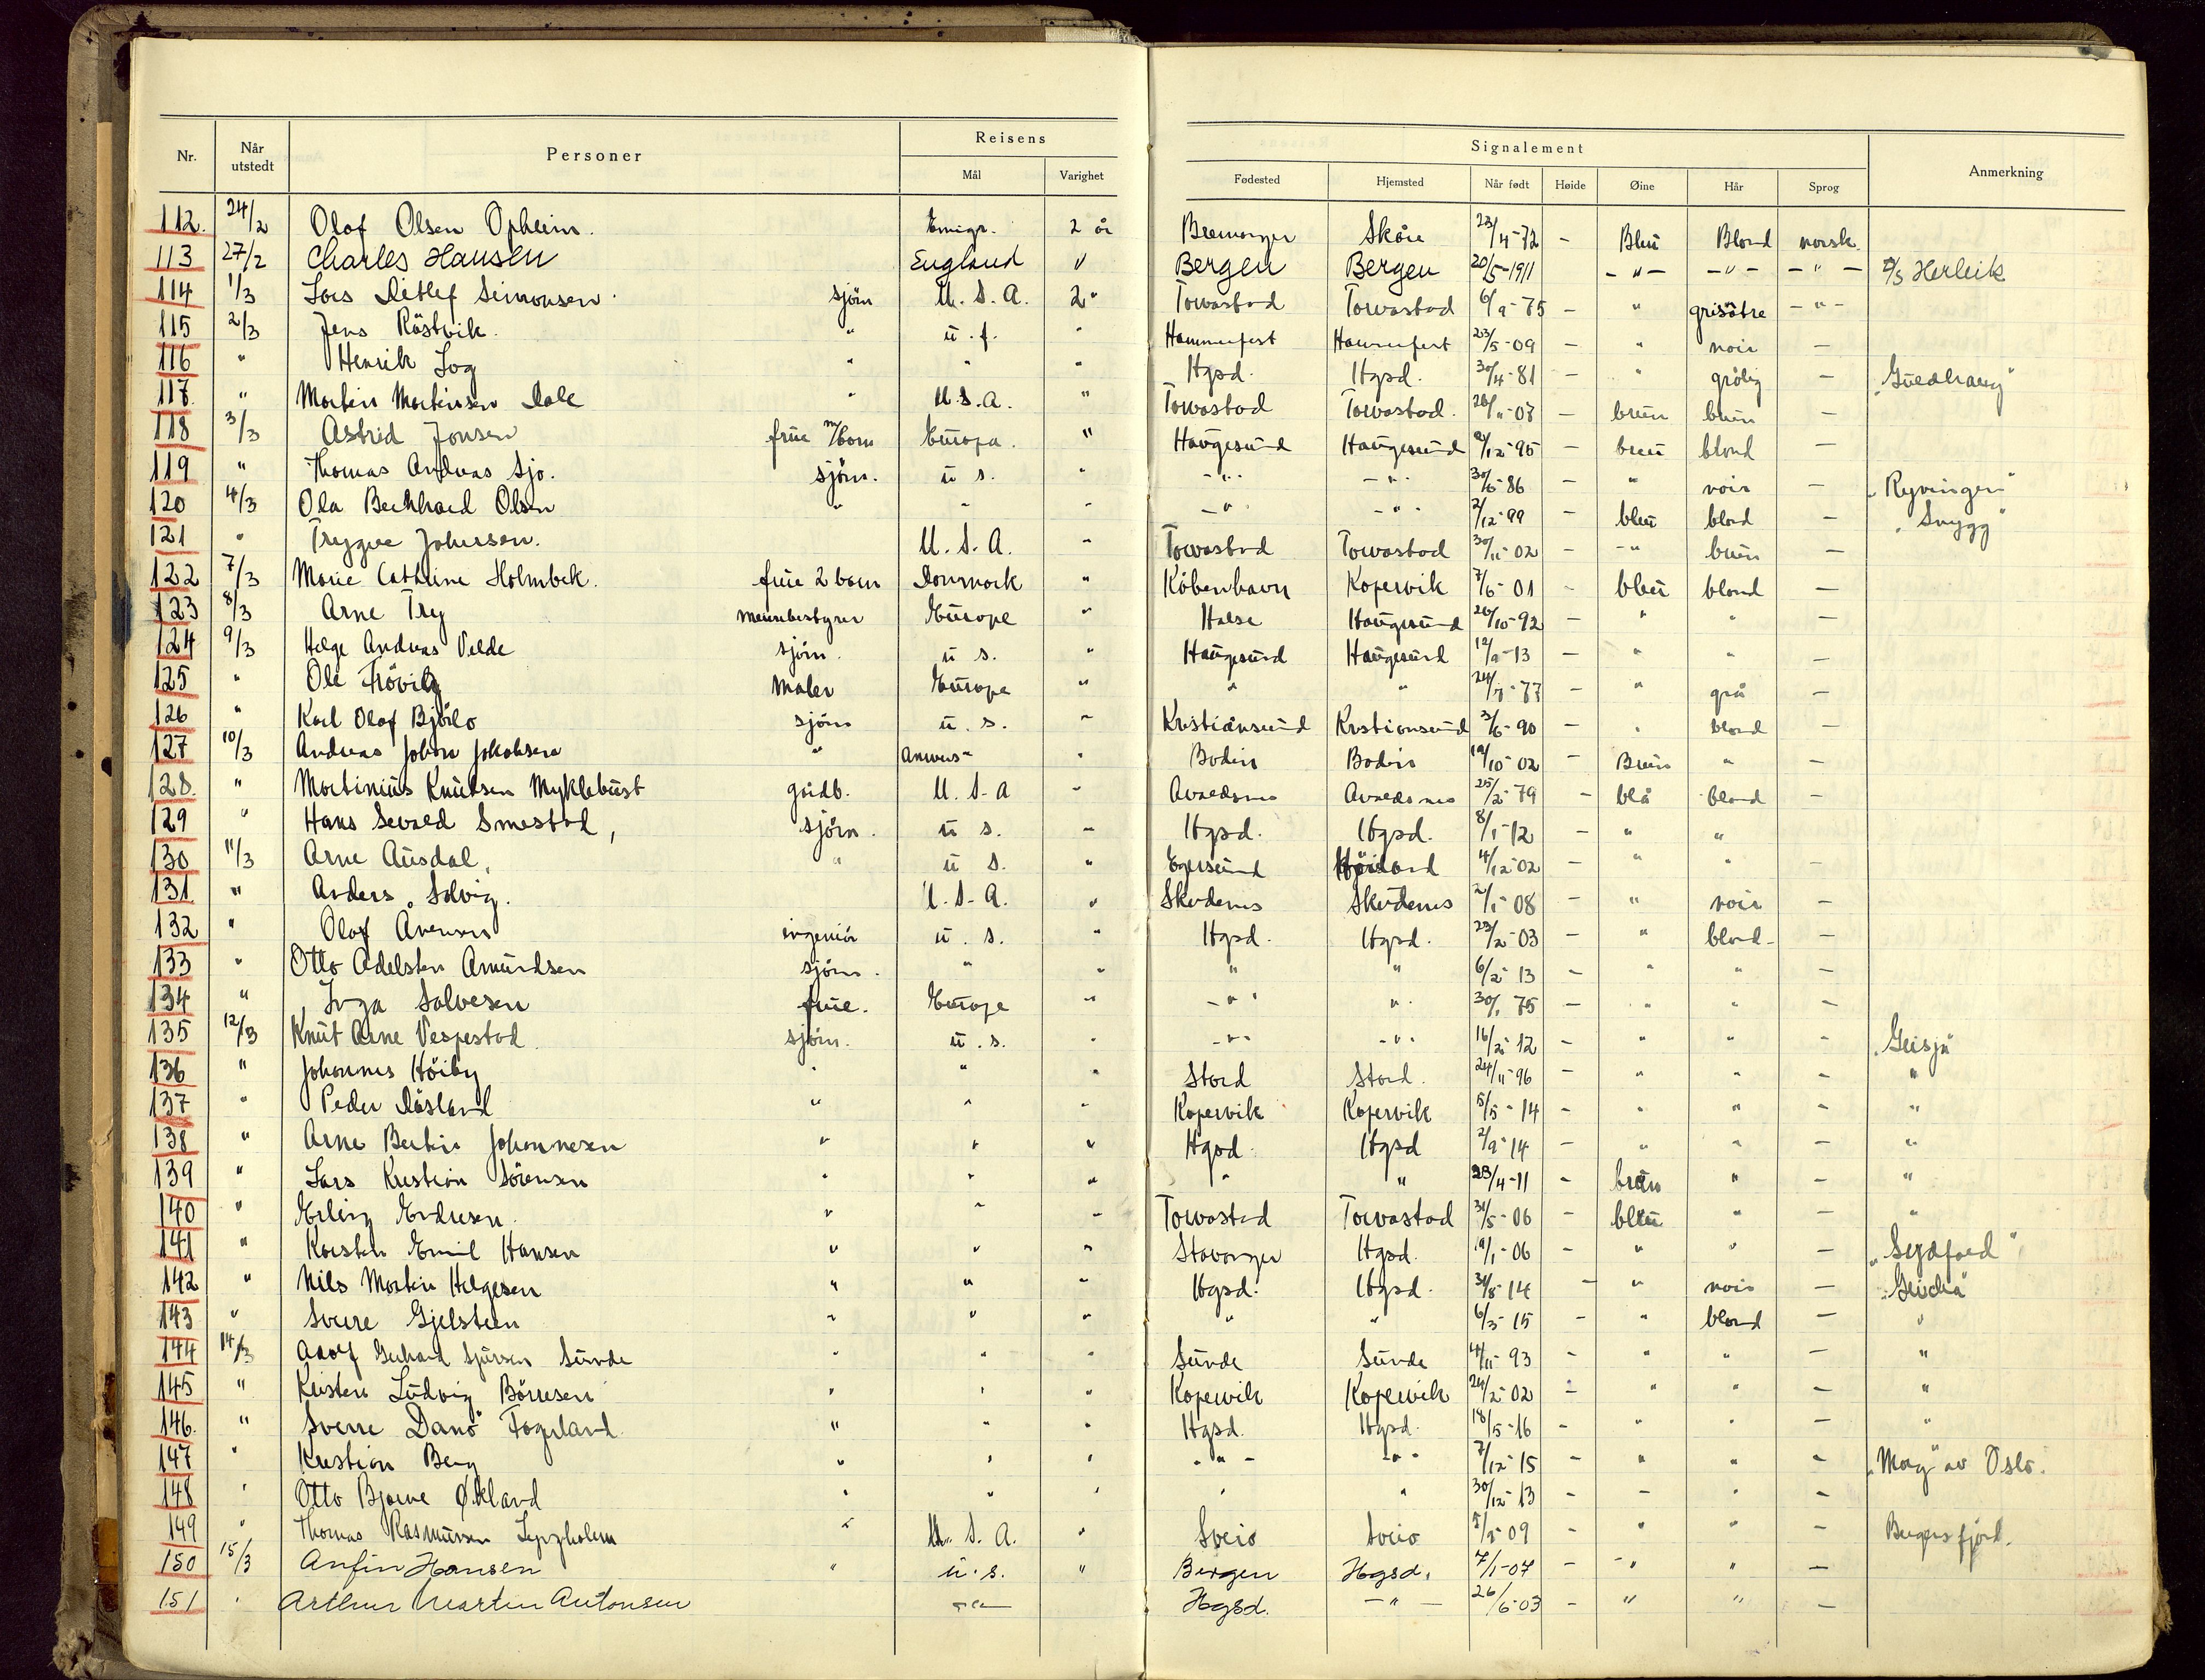 Nr. Når utstedt Personer Reisens Mål Varighet Signalement Fødested Hjemsted Når født Høide Øine Hår Sprog Anmerkning
112. 24/2 Olaf Olsen Opheim. Emigr. 2 år Bremanger Skåre 23/4-72 - Bleu Blond norsk.
113 27/2 Charles Hansen England " Bergen Bergen 20/5-1911 -"- -"- -"- Herleik
114 1/3 Lars Detlef Simonsen. sjöm U.S.A. 2" Torvastad Torvastad 6/9-75 - " grisåtre -"-
115 2/3 Jens Röstvik. " u.f. " Hammerfest Hammerfest 23/5-09 - " noir -
116 " Henrik Log " " " Hgsd. Hgsd. 30/4-81 - " grålig -
117. " Martin Martinsen Dale " U.S.A. " Torvastad Torvastad. - brun brun -
118 3/3 Astrid Jonsen frue m/barn Europa. " Haugesund Haugesund - brun blond -
119 " Thomas Andreas Sjo. sjöm. u s. " -"- -"- - " noir - "Ryvingen"
120 4/3 Ola Berkhard Olsen " " " -"- -"- 2/12-99 - bleu blond - "Snygg"
121 " Trygve Johnsen. U.S.A. " Torvastad Torvastad 30/11-02 - -"- brun -
122 7/3 Marie Cathrine Holmbek. frue 2 barn Danmark " Köbenhavn Kopervik 7/6-01 - bleu blond -
123 8/3 Arne Try Europe " Halse Haugesund 26/10-92 - " " -
124 9/3 Helge Andreas Velde sjöm. u s. " Haugesund Haugesund 12/9-13 - " " -
125 " Ole Maler Europe " " " - " grå -
126 " Karl Olaf Bjørlo sjöm u.s. " Kristiansund Kristiansund 3/6-90 - " blond -
127 10/3 Andreas Johan Jakobsen " " Bodin Bodin 19/10-02 - Brun " -
128. " Martinius Knutsen Myklebust gårdb. U.S.A " Avaldsnes Avaldsnes 25/2-79 - blå blond -
129 " Hans Sevald Smestad, sjöm. u s. " Hgsd. Hgsd. 8/1-12 - " "
130 11/3 Arne Ausdal, " u s. " Egersund 4/12-02 - " " -
131 " Anders Solvig. U.S.A. " Skudenes Skudenes 2/1-08 - " noir -
132 " Olaf ingeniör u.s. " Hgsd. Hgsd. 23/2-03 - " blond -
133 " Otto Adelsten Amundsen sjöm. " " " " 6/2-13 - " " -
134 " Inga Salvesen frue. Europe " -"- " 30/1-75 - " " -
135 12/3 Knut Arne Vespestad. sjöm. u.s. " -"- -"- 16/2-12 - " " - "Geisja"
136 " Johannes Höiby " " " Stord Stord. 24/11-96 - " " - "
137 " Peder Dåsland " " " Kopervik Kopervik 5/5-14 - " " - "
138 " Arne Bertin Johannesen " " " Hgsd. Hgsd 2/9-14 - " " - "
139 " Lars Kristian Sörensen " " " " " 23/4-11 - brun " - "
140 " Erling Endresen. " " " Torvastad Torvastad 31/5-06 - bleu " - "
141 " Karsten Emil Hansen " " " Stavanger Hgsd. 19/1-06 - " " - "Sydfold"
142 " Nils Martin Helgesen " " " Hgsd. Hgsd. 31/8-14 - " noir -
143 " Sverre Gjelsteen " " " " " 6/3-15 - " blond - "
144 14/3 Adolf Gerhard Sjursen Sunde " " " Sunde Sunde 4/11-93 - " " - "
145 " Kristen Ludvig Börresen " " " Kopervik Kopervik 24/2-02 - " " - "
146. " Sverre Danø Fagerland " " " Hgsd. Hgsd. 18/5-16 - " " - "
147 " Kristian Berg " " " -"- -"- 7/12-15 - " " - "May" av Oslo.
148 " Otto Bjarne Økland " " " " " 30/12-13 - - " -
149 " Thomas Rasmussen " U.S.A. " Sveio Sveio - " " - Bergensfjord.
150 15/3 Anfin Hansen " u.s. " Bergen Hgsd. 7/1-07 - -" "
151 " Arthur Martin Antonsen -"- Hgsd. -"- 26/6-03 - " " -